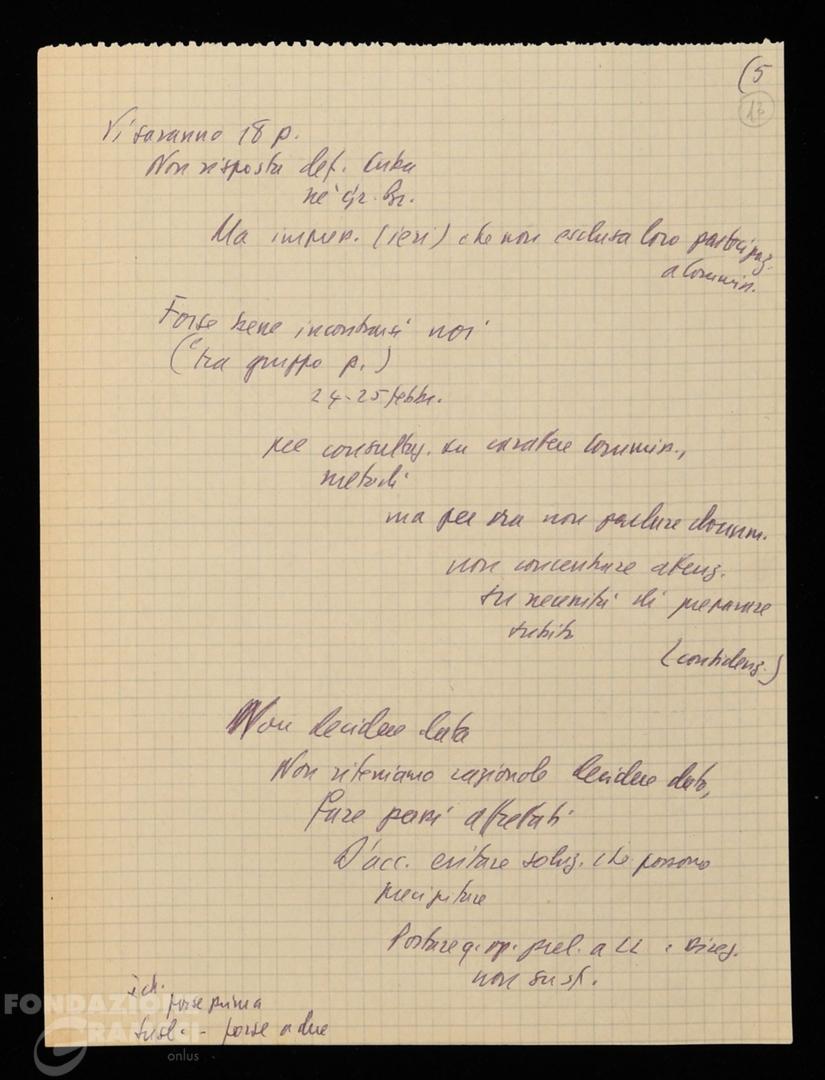 (5
13
Vi saranno 18 p.
Non risposta def. Cuba
né gr. Br.
Ma impres. (ieri) che non esclusa loro partecipaz.
a Commis.
Forse bene incontrarsi noi
(tra gruppo p.)
24-25 febbr.
per consultaz. su carattere Commis.,
metodi
ma per ora non parlare docum.
non concentrare attenz.
su necessità di preparare
subito
(confidenz.)
Non decidere data
Non riteniamo razionale decidere data,
fare passi affrettati
D'acc. evitare soluz. che possono
precipitare
Portare q. op. prel. a LL
non su st.
forse prima
- forse a due
FONDAZIONE
GRAMSCI
onlus